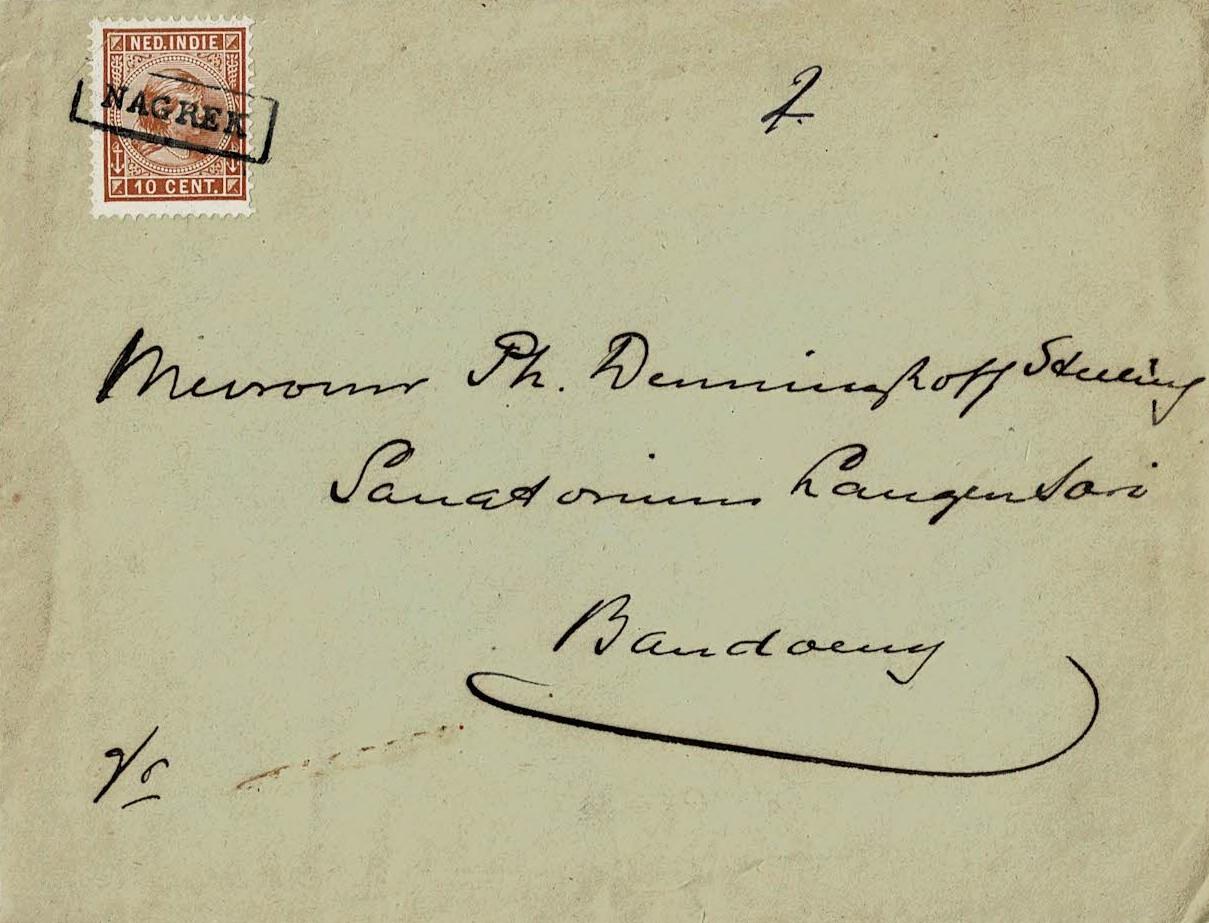 NED. INDIE
NAGREK
10 CENT.
Mevrouw Ph. Denninghoff Stelling
Sanatorium Langensari
Bandoeng